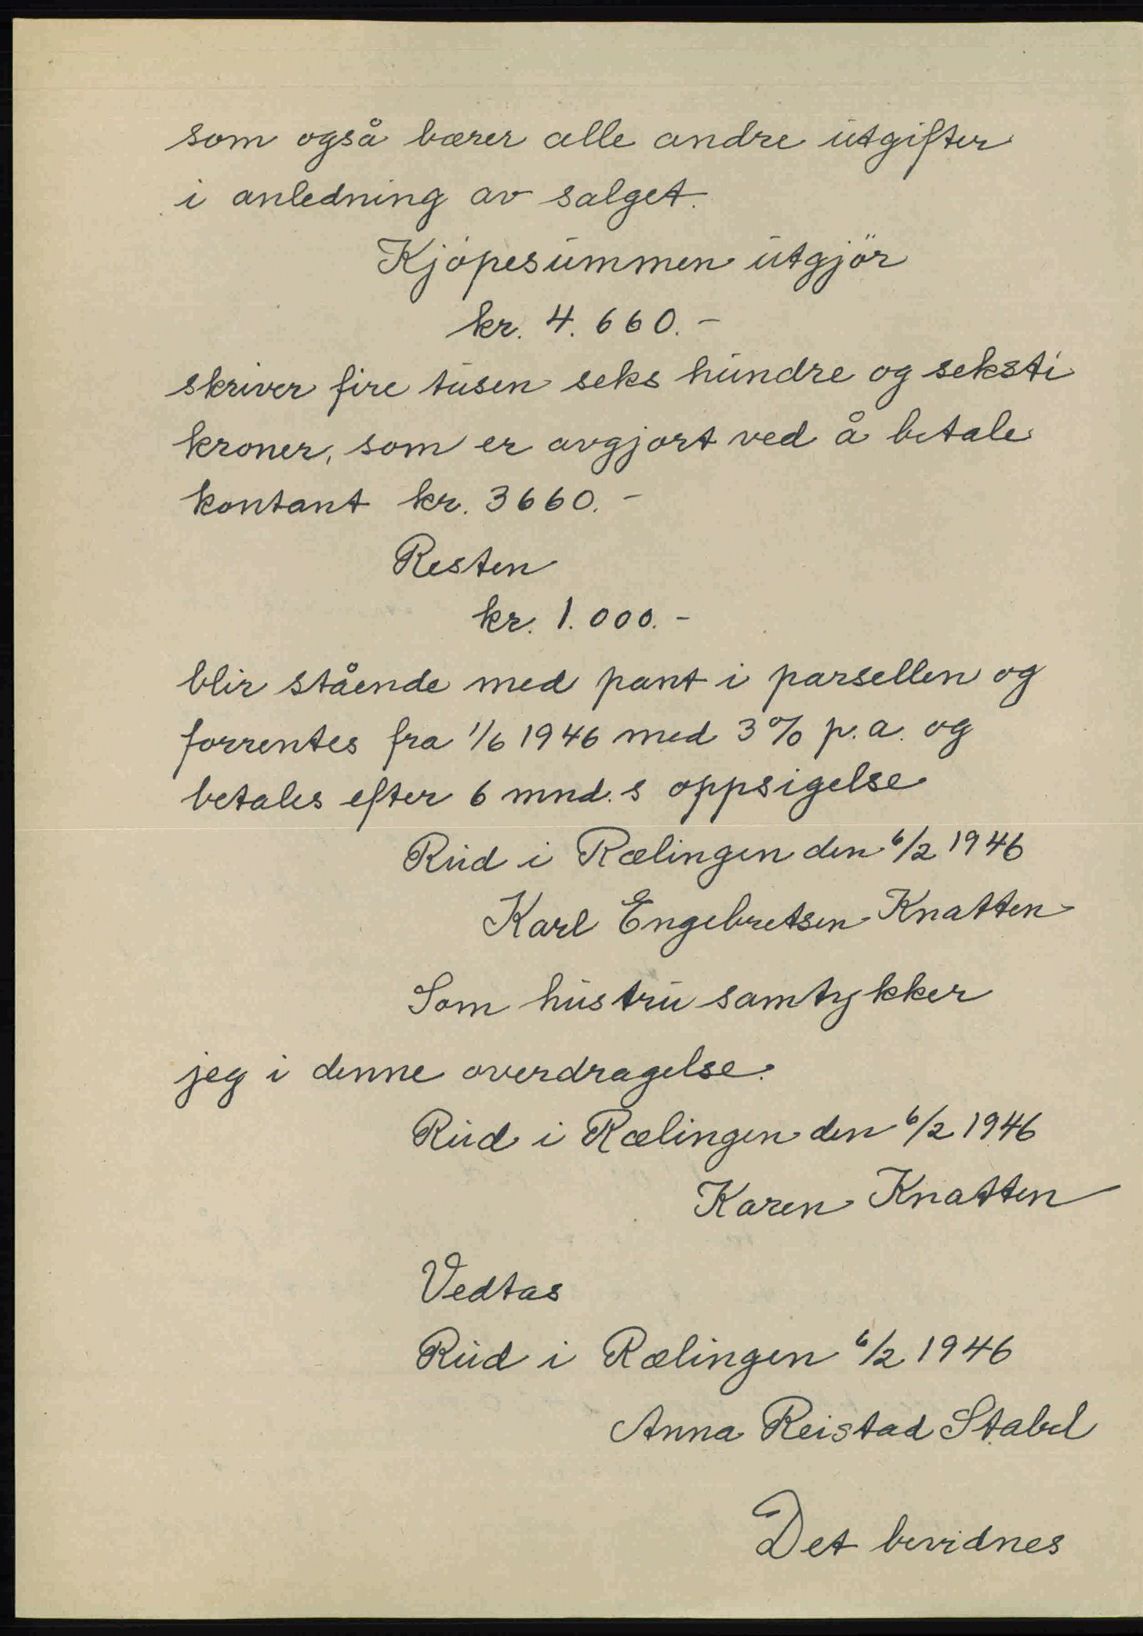 som også bærer alle andre utgifter
i anledning av salget.
Kjöpesummen utgjör
kr. 4.660.-
skriver fire tusen seks hundre og seksti
kroner, som er avgjort ved å betale
kontant kr. 3660.-
Resten
kr. 1.000.-
blir stående med pant i parsellen og
forrentes fra 1/6 1946 med 3% p.a. og
betales efter 6 mnd.s oppsigelse
Rud i Rælingen den 6/2 1946
Karl Engebretsen Knatten
Som hustru samtykker
jeg i denne overdragelse.
Rud i Rælingen den 6/2 1946
Karen Knatten
Vedtas
Rud i Rælingen 6/2 1946
Anna Reistad Stabel
Det bevidnes